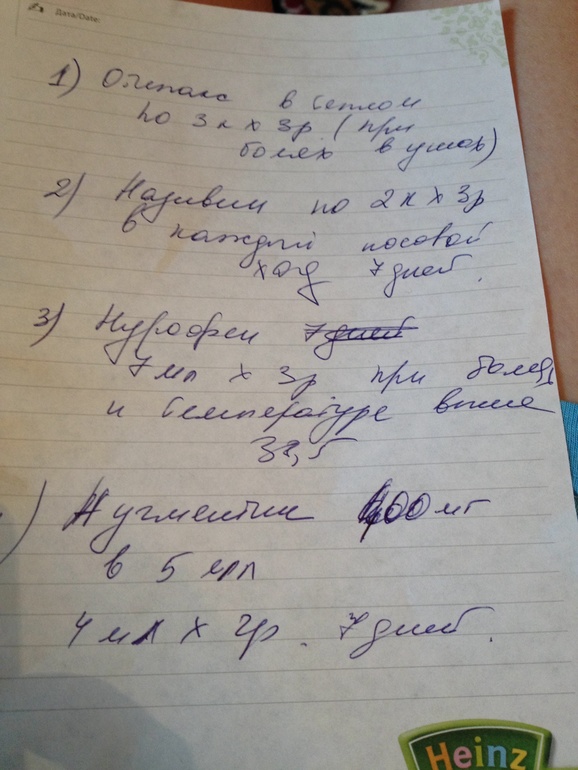 Дата/Date:
1) Отипакс в теплом
по 3к х 3р (при
болях в ушах)
2) Називин по 2к х 3р
в каждый носовой
ход 7 дней.
3) Нурофен 7 дней
7 мл х 3р при болях
и температуре выше
38,5
) Аугментин 400 мг
в 5 мл
4 мл х 2р. 7 дней.
Heinz